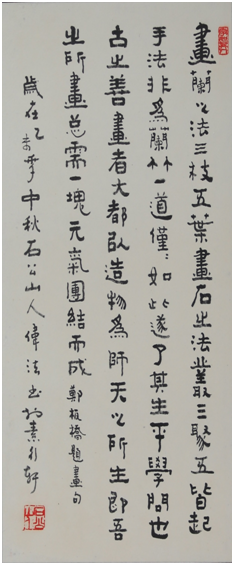 畫蘭之法三枝五葉畫石之法叢三聚五皆起
手法非為蘭竹一道僅僅如此遂了其生平學問也
古之善畫者大都以造物為師天之所生即吾
之所畫总需一塊元氣團結而成 鄭板橋題畫句
歲在乙未年中秋石公山人偉法书於素行軒